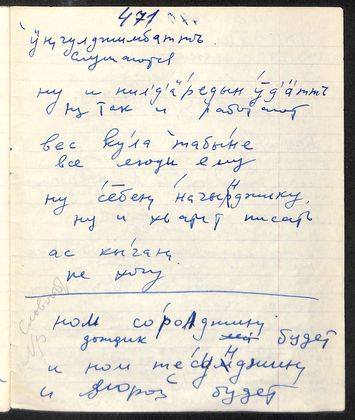 471
ӱңгулджимбаттъ
слушаются
ну и нилʼдʼӓ́редын ӱ́дʼӓттъ
ну так и работают
вес ку́ла табы́не
все люди ему
ну се̄бен начырджику,
ну и хватит писать
ас кы́ган
не хочу
ном соролджику
дождик будет
и ном
и мороз будет